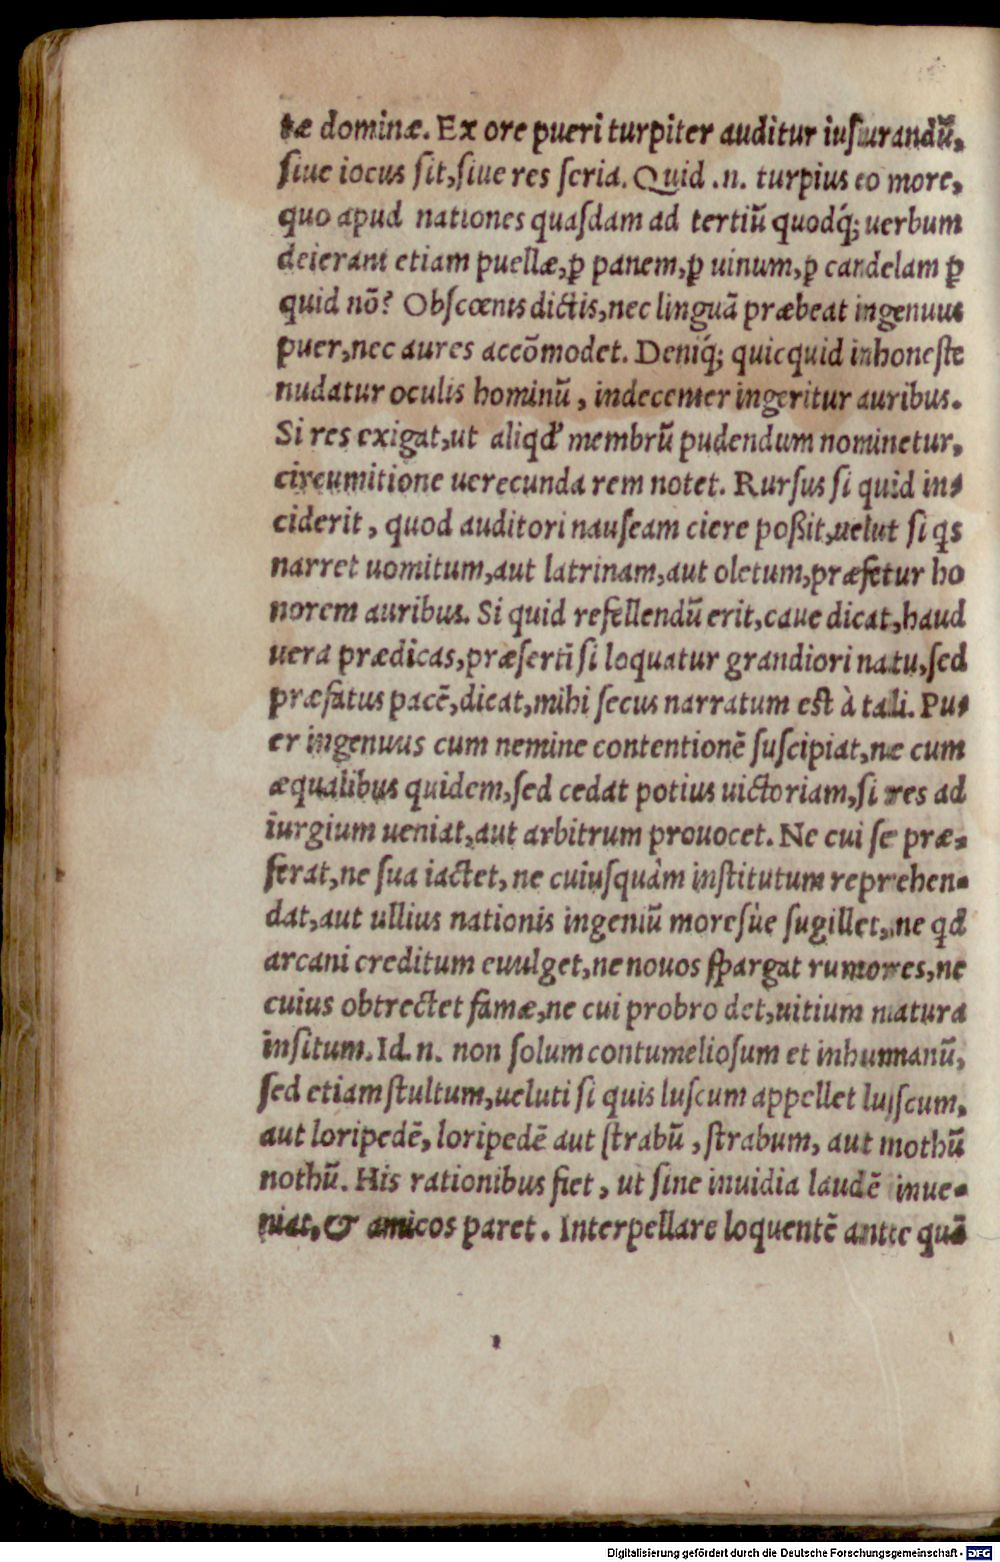 tæ dominæ. Ex ore pueri turpiter auditur iusiurandū,
siue iocus sit,siue res seria. Quid .n. turpius eo more,
quo apud nationes quasdam ad tertiū quodq́; uerbum
deierant etiam puellæ,ꝑ panem,ꝑ uinum,ꝑ candelam ꝑ
quid nō? Obscœnis dictis,nec linguā præbeat ingenuus
puer,nec aures accōmodet. Deniq́; quicquid inhoneste
nudatur oculis hominū , indecenter ingeritur auribus.
Si res exigat,ut aliqd' membrū pudendum nominetur,
circumitione uerecunda rem notet. Rursus si quid in-
ciderit , quod auditori nauseam ciere poßit,uelut si qs
narret uomitum,aut latrinam,aut oletum,præfetur ho
norem auribus. Si quid refellendū erit,caue dicat,haud
uera prædicas,præsertī si loquatur grandiori natu,sed
præfatus pacē,dicat,mihi secus narratum est à tali. Pu-
er ingenuus cum nemine contentionē suscipiat,ne cum
æqualibus quidem,sed cedat potius uictoriam,si res ad
iurgium ueniat,aut arbitrum prouocet. Ne cui se præ-
ferat,ne sua iactet, ne cuiusquàm institutum reprehen-
dat,aut ullius nationis ingeniū moresùe sugillet, ne qd
arcani creditum euulget,ne nouos spargat rumores,ne
cuius obtrectet famæ,ne cui probro det,uitium natura
insitum. Id .n. non solum contumeliosum et inhumanū,
sed etiam stultum,ueluti si quis luscum appellet luscum,
aut loripedē, loripedē aut strabū , strabum, aut nothū
nothū. His rationibus fiet , ut sine inuidia laudē inue-
niat, & amicos paret . Interpellare loquentē ante quā
Digitalisierung gefördert durch die Deutsche Forschungsgemeinschaft - DFG